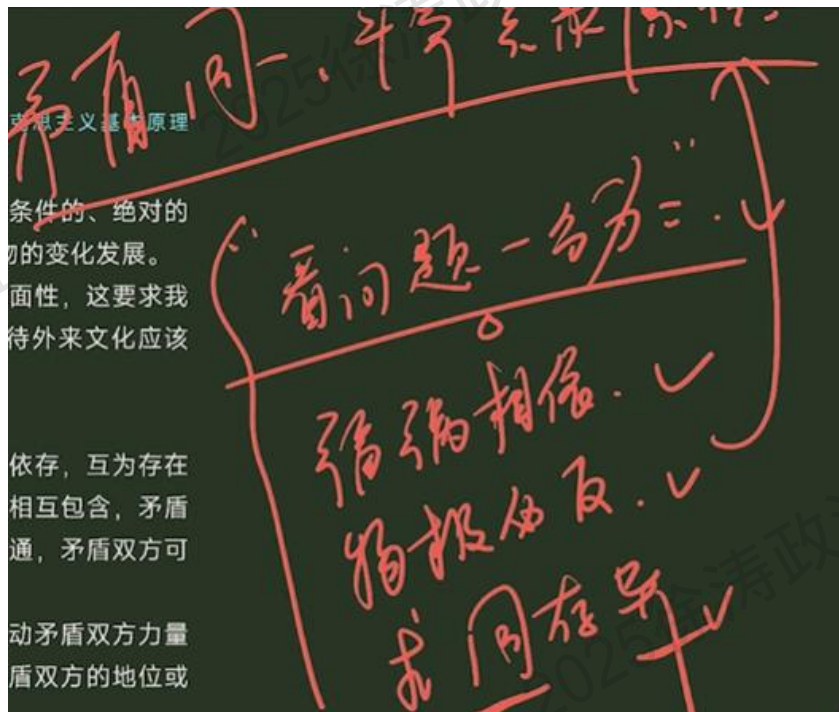 矛盾同一、斗争关系原理.
克思主义基本原理
条件的、绝对的
物的变化发展。
面性，这要求我
待外来文化应该
依存，互为存在
相互包含，矛盾
通，矛盾双方可
动矛盾双方力量
盾双方的地位或
“看问题一分为二.”
福祸相倚.
物极必反.
求同存异
2025徐涛政
2025徐涛政